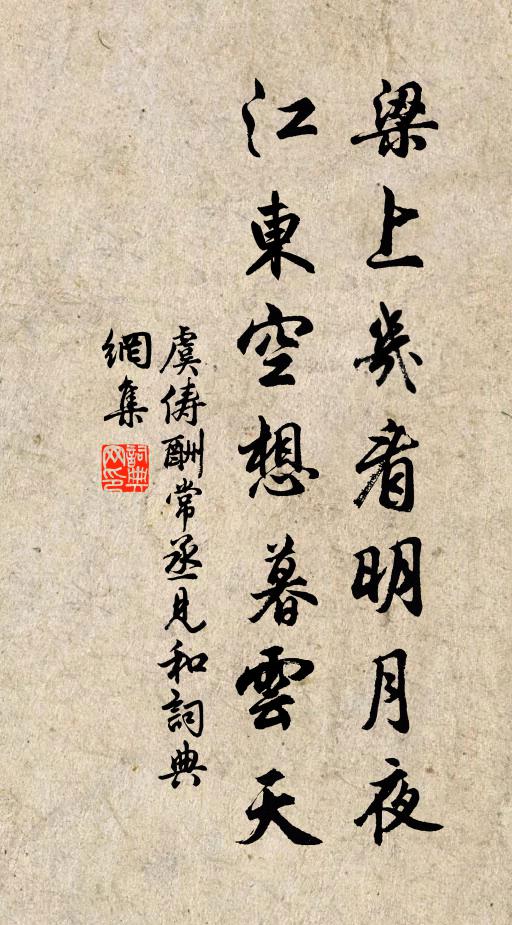 梁上幾看明月夜
江東空想暮雲天
虞儔酬常丞見和詞典
網集
詞典
网印